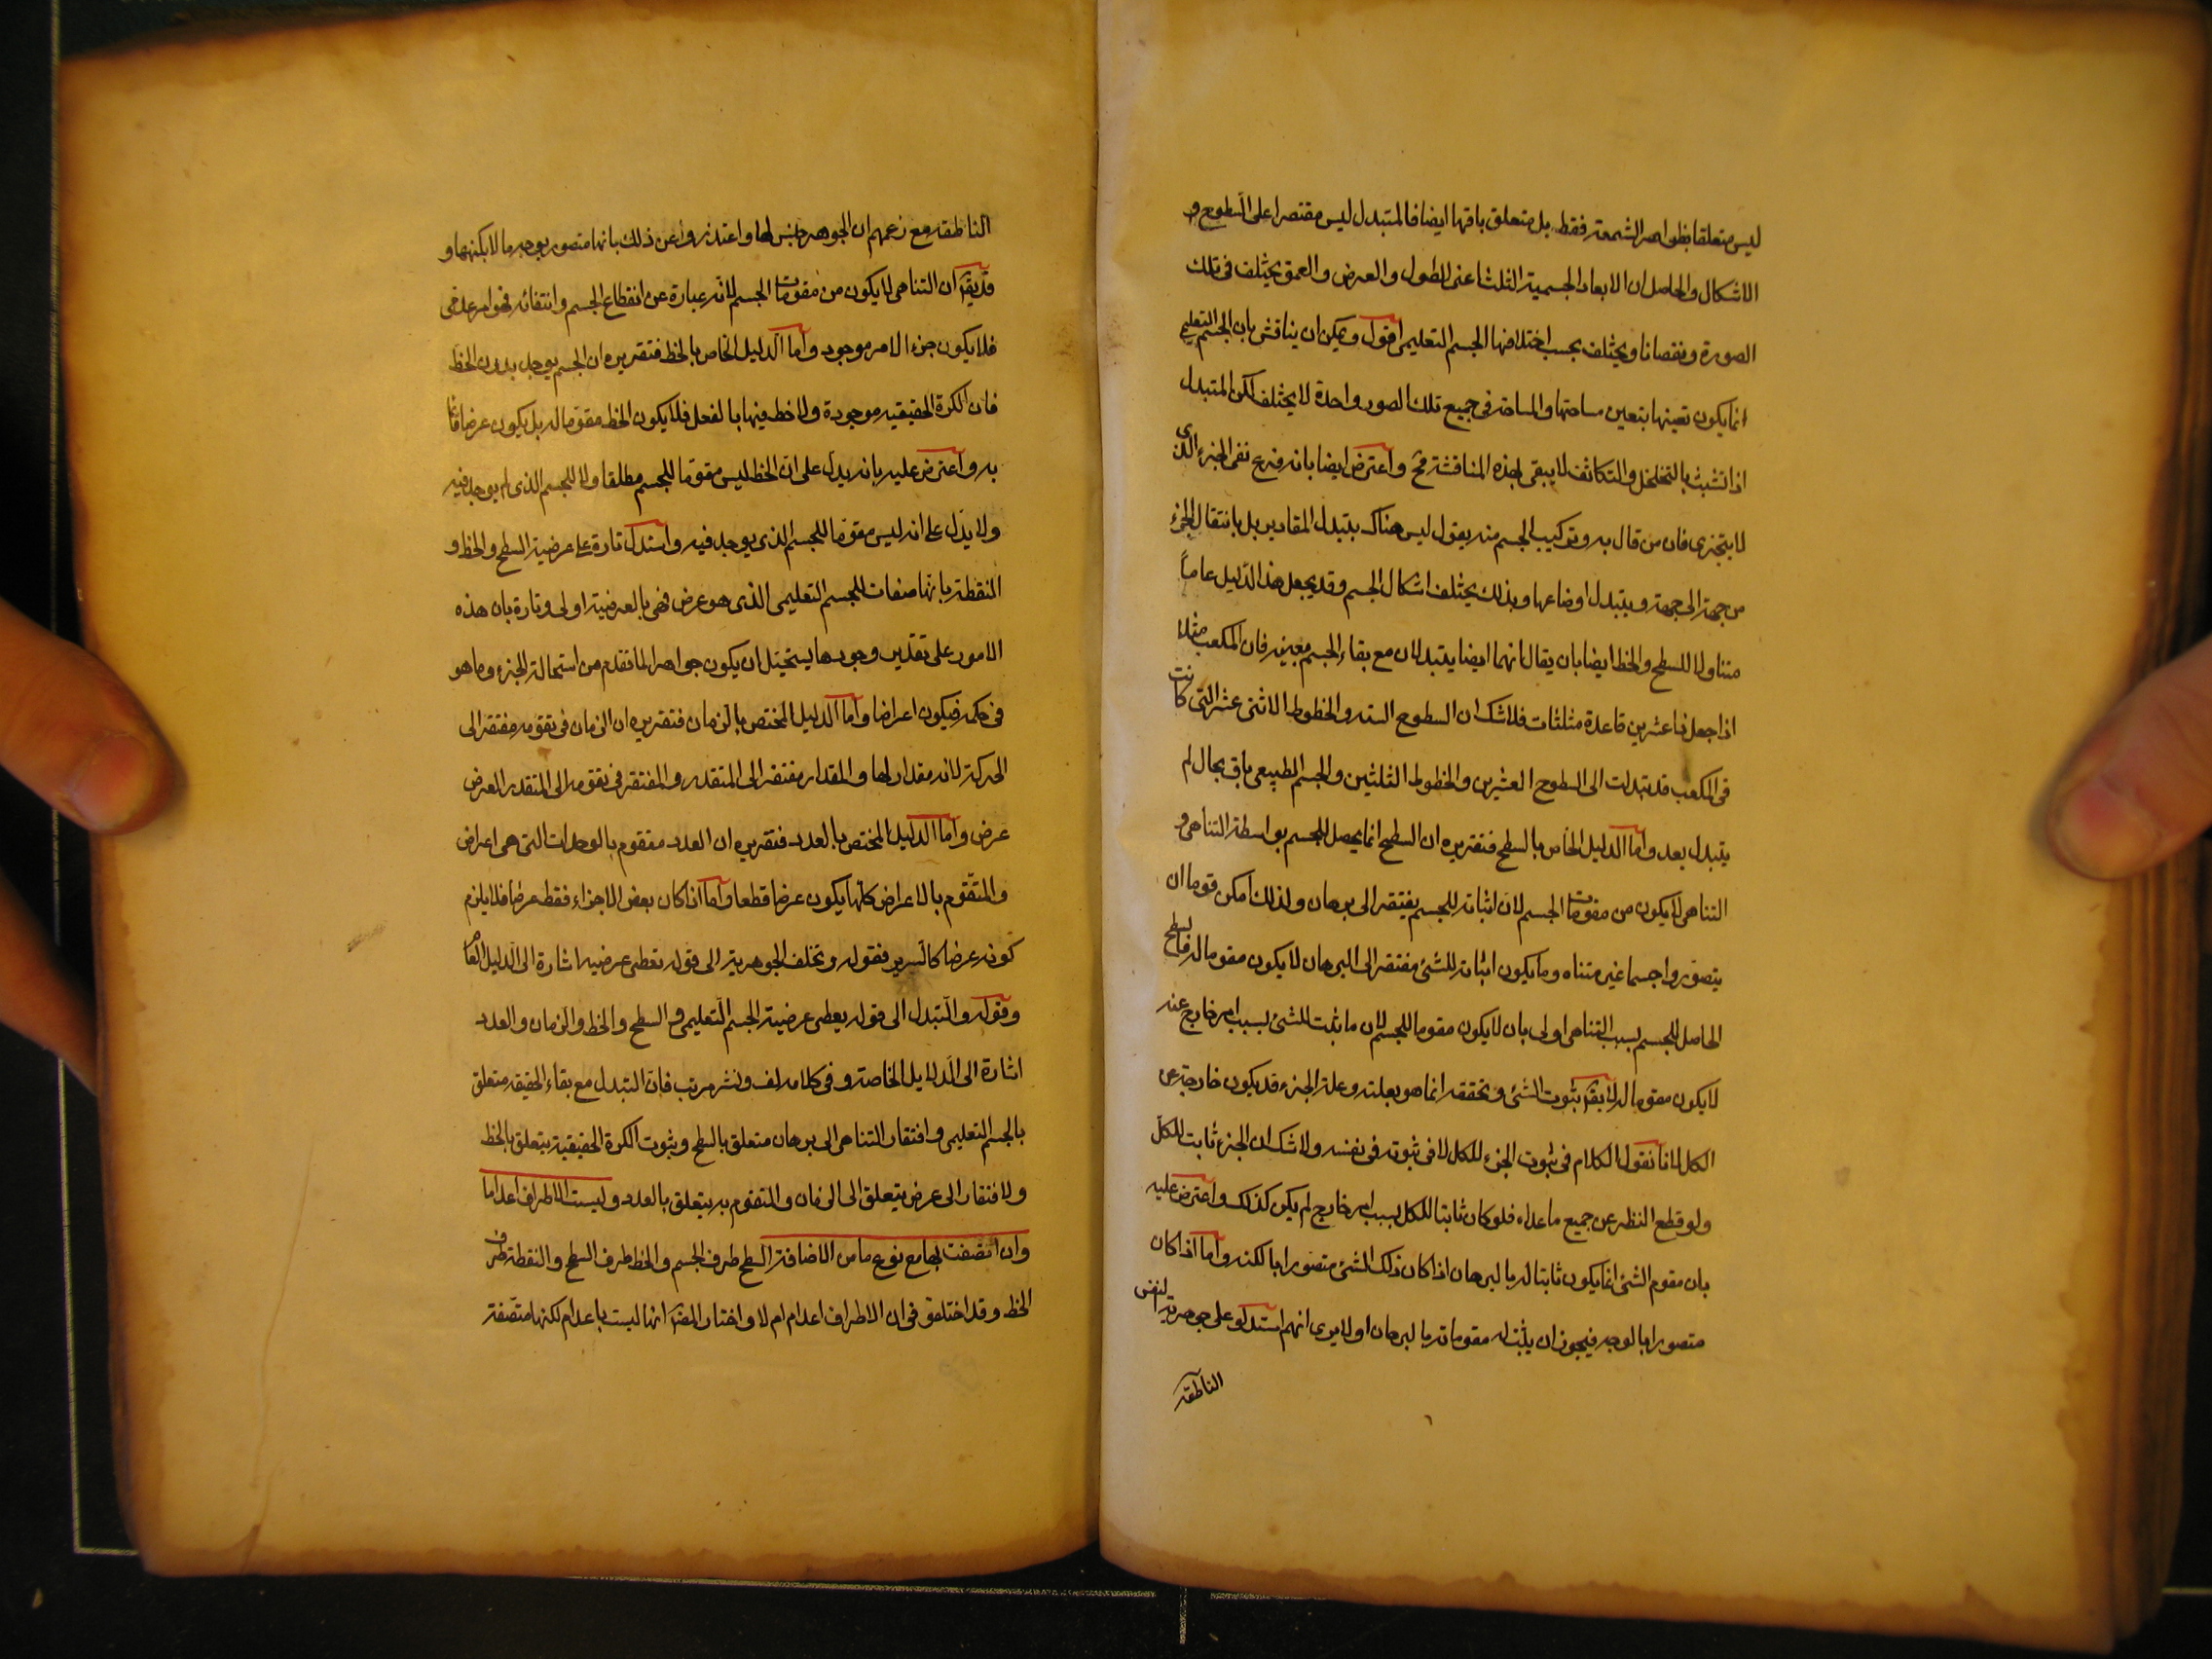 ليس متعلقا بظواهر الشمعة فقط بل متعلق باقها ايضا فالمتبدل ليس مقتصرا على السطوح و
الاشكال والحاصل ان الابعاد الجسمية الثلث اعنى الطول والعرض والعمق يختلف فى تلك
الصورة ونقصانا ويختلف بحسب اختلافها الجسم التعليمى اقول ويمكن ان يناقش بان الجسم التعليمى
انما يكون تعينها بتعين مساحتها والمساحة فى جميع تلك الصور واحدة لا يختلف لكن المتبدل
اذا تشبث بالتخلخل والتكاثف لا يبقى لهذه المناقشة مح واعترض ايضا بانه فرع نفى الجزء الذى
لا يتجزى فان من قال به وتركيب الجسم منه يقول ليس هناك بتبدل المقادير بل بانتقال الجزء
من جهة الى جهة ويتبدل اوضاعها وبذلك يختلف اشكال الجسم وقد يجعل هذا الدليل عاماً
متناولا للسطح والخط ايضا بان يقال انهما ايضا يتبدلان مع بقاء الجسم بعينه فان المكعب مثلا
اذا جعل ذا عشرين قاعدة مثلثات فلا شك ان السطوح الستة والخطوط الاثنى عشر التى كانت
فى المكعب قد تبدلت الى السطوح العشرين والخطوط الثلثين والجسم الطبيعى باق بحال لم
يتبدل بعد واما الدليل الخاص بالسطح فتقريره ان السطح انما يحصل للجسم بواسطة التناهى و
التناهى لا يكون من مقومات الجسم لان اثباته للجسم يفتقر الى برهان ولذلك امكن قوما ان
يتصوروا جسما غير متناه وما يكون اثباته للشئ مفتقر الى البرهان لا يكون مقوما له فالسطح
الحاصل للجسم بسبب التناهى اولى بان لا يكون مقوما للجسم لان ما يثبت للشئ بسبب امر خارج عنه
لا يكون مقوما له لا يقر ثبوت الشئ وتحققه انما هو بعلته وعلة الجزء قد يكون خارجة عن
الكل لانا نقول الكلام فى ثبوت الجزء للكل لا فى ثبوته فى نفسه ولا شك ان الجزء ثابت للكل
ولو قطع النظر عن جميع ما عداه فلو كان ثابتا للكل بسبب امر خارج لم يكن كذلك واعترض عليه
بان مقوم الشئ انما يكون ثابتا له بالبرهان اذا كان ذلك الشئ متصورا بالكنه واما اذا كان
متصورا بالوجه فيجوز ان يثبت له مقوماته بالبرهان اولا يرى انهم استدلوا على جوهرية النفس
الناطقة
الناطقة مع زعمهم ان الجوهر جنس لها واعتذروا عن ذلك بانها متصور بوجه ما لا بكنهها و
قد يقر ان التناهى لا يكون من مقومات الجسم لانه عبارة عن انقطاع الجسم وانتفائه فهو امر عدمى
فلا يكون جزء الامر موجود واما الدليل الخاص بالخط فتقريره ان الجسم يوجد بدون الخط
فان الكرة الحقيقية موجودة ولا خط فيها بالفعل فلا يكون الخط مقوما له بل يكون عرضا قائما
به واعترض عليه بانه يدل على ان الخط ليس مقوما للجسم مطلقا ولا للجسم الذى لم يوجد فيه
ولا يدل على انه ليس مقوما للجسم الذى يوجد فيه واستدل تارة على عرضية السطح والخط و
النقطة بانها صفات للجسم التعليمى الذى هو عرض فهى بالعرضية اولى وتارة بان هذه
الامور على تقدير وجودها يستحيل ان يكون جواهر لما تقدم من استحالة الجزء وما هو
فى حكمه فيكون اعراضا واما الدليل المختص بالزمان فتقريره ان الزمان فى تقومه مفتقر الى
الحركة لانه مقدار لها والمقدار مفتقر الى المتقدر والمفتقر فى تقومه الى المتقدر العرض
عرض واما الدليل المختص بالعدد فتقريره ان العدد متقوم بالوحدات التى هى اعراض
والمتقوم بالاعراض كلها يكون عرضا قطعا واما اذا كان بعض الاجزاء فقط عرضا فلا يلزم
كونه عرضا كالسرير فقوله وتخلف الجوهرية الى قوله تعطى عرضيه اشارة الى الدليل العام
وقوله والتبدل الى قوله يعطى عرضية الجسم التعليمى و السطح والخط والزمان والعدد
اشارة الى الدلايل الخاصة وفى كلامه لف ونشر مرتب فان التبدل مع بقاء الحقيقة متعلق
بالجسم التعليمى وافتقار التناهى الى برهان متعلق بالسطح وثبوت الكرة الحقيقية يتعلق بالخط
ولافتقار الى عرض يتعلق الى الزمان والتقوم به يتعلق بالعدد وليست الاطراف اعداما
وان اتصفت بها مع نوع ما من الاضافة السطح طرف الجسم والخط طرف السطح والنقطة طرف
الخط وقد اختلفوا فى ان الاطراف اعدام ام لا واختار المصر انها ليست باعدام لكنها متصفة